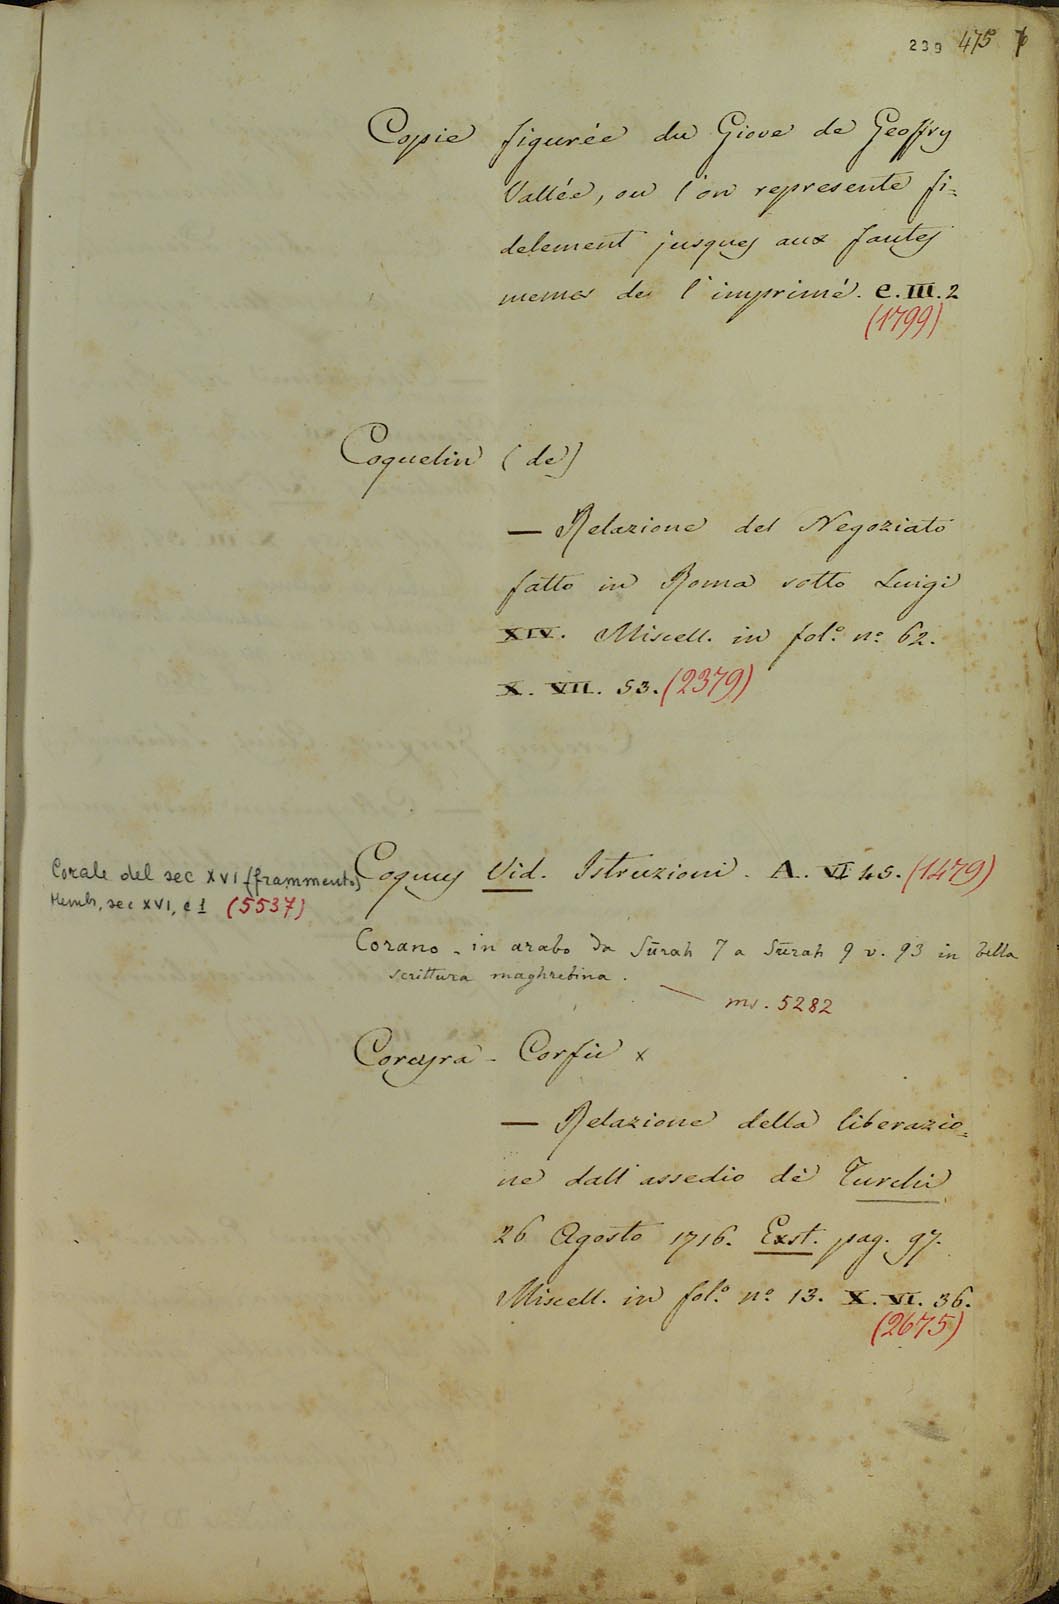 239 475
Copie figurée du Giove de Geoffry
Vallée, ou l'on represente fi=
delement jusques aux fautes
memes de l'imprimé. e. III. 2
(1799)
Coquelin (de)
— Relazione del Negoziato
fatto in Roma sotto Luigi
XIV. Miscell. in fol.º nº 62.
X. VII. 53. (2379)
Coques Vid. Istruzioni. A. VI 45. (1479)
Corale del sec XVI (frammento)
Memb, sec XVI, c 1 (5537)
Corano - in arabo da Sūrah 7 a Sūrah 9 v. 93 in bella
scrittura maghrebina.
ms. 5282
Corcyra - Corfù x
— Relazione della liberazio=
ne dall'assedio de' Turchi
26 Agosto 1716. Exst. pag. 97.
Miscell. in fol.º nº 13. X. VI. 36.
(2675)